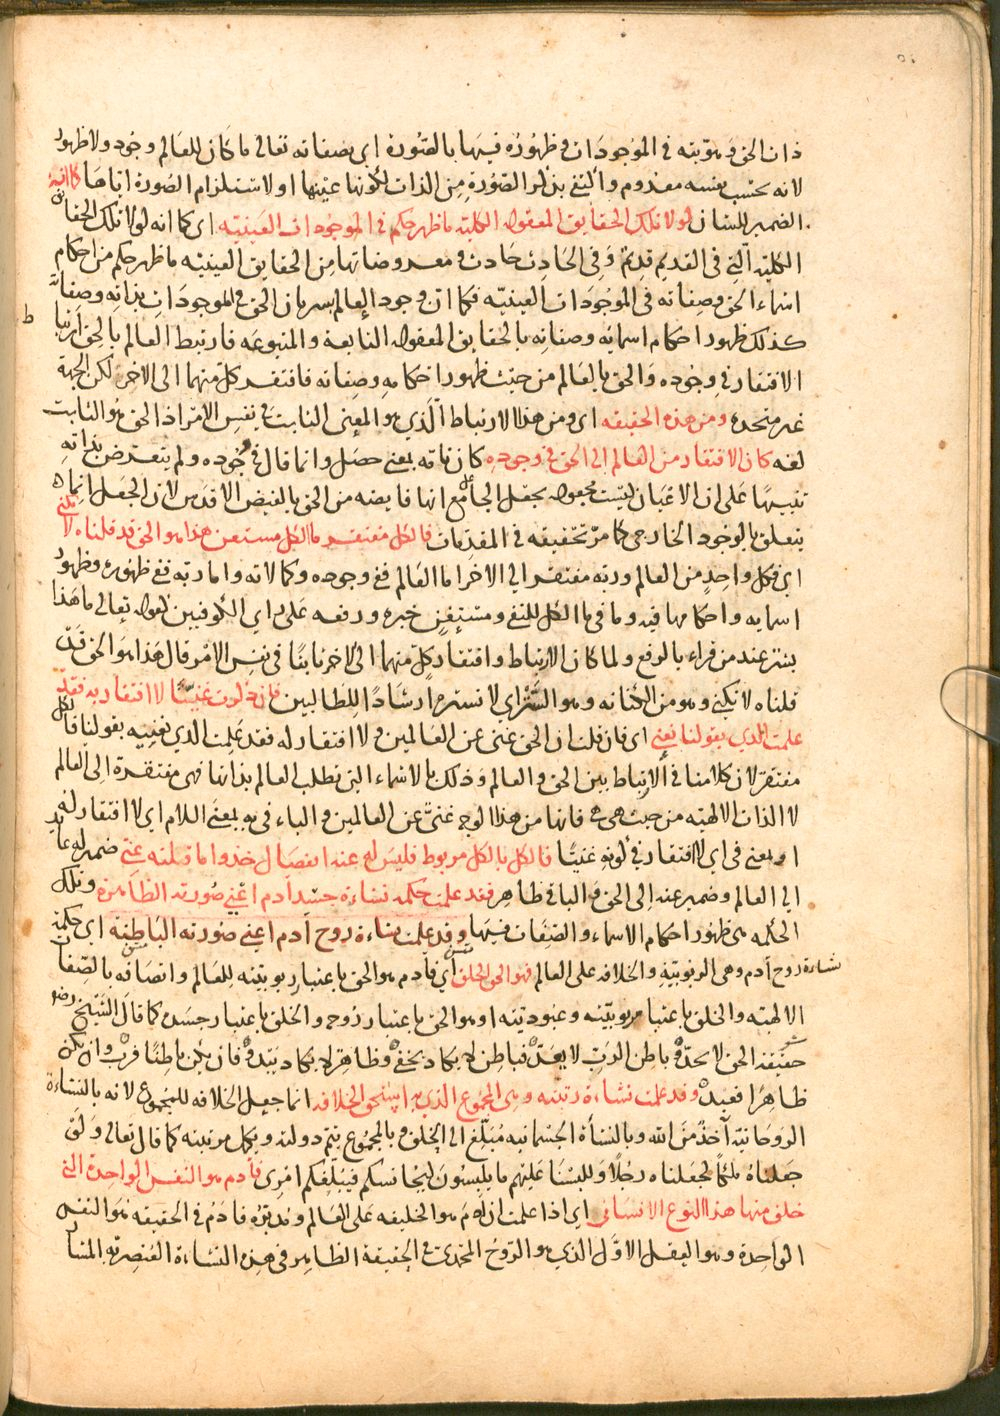 ذات الحق وهويته في الموجودات وظهوره فيها بالصورة اي بصفاته تعالى ما كان للعالم وجود ولا ظهور
لانه بحسب نفسه معدوم واكتفى بذكر الصورة من الذات لكونها عينها او لاستلزام الصورة اياها كما انه
الضمير للشان لولا تلك الحقايق المعقولة الكلية ما ظهر حكم في الموجودات العينية اي كما انه لولا تلك الحقايق
الكلية التي في القديم قديم وفي الحادث حادث ومعروضاتها من الحقايق العينية ما ظهر حكم من احكام
اسماء الحق وصفاته في الموجودات العينية فكما ان وجود العالم بسريان الحق في الموجودات بذاته وصفاته
كذلك ظهور احكام اسمايه وصفاته بالحقايق المعقولة التابعة والمتبوعة فارتبط العالم بالحق ارتباط
الافتقار في وجوده والحق بالعالم من حيث ظهور احكامه وصفاته فافتقر كل منهما الى الاخر لكن الجهة
غير متحدة ومن هذه الحقيقة اي ومن هذا الارتباط الذي هو المعنى الثابت في نفس الامر اذ الحق هو الثابت
لغة كان الافتقار من العالم الى الحق في وجوده كان تامة بمعنى حصل وانما قال في وجوده ولم يتعرض بذاته
تنبيها على ان الاعيان ليست مجعولة بجعل الجاعل مع انها فايضة من الحق بالفيض الاقدس لان الجعل انما
يتعلق بالوجود الخارجي كما مر تحقيقه في المقدمات فالكل مفتقر ما الكل مستغن هذا هو الحق قد قلناه لا نكني
اي فكل واحد من العالم وربه مفتقر الى الاخر اما العالم ففي وجوده وكمالاته واما ربه ففي ظهوره وظهور
اسمايه واحكامها فيه وما في ما الكل للنفي ومستغن خبره ورفعه على راي الكوفيين كقوله تعالى ما هذا
بشر عند من قراء بالرفع ولما كان الارتباط وافتقار كل منهما الى الاخر ثابتا في نفس الامر قال هذا هو الحق قد
قلناه لا نكني وهو من الكناية وهو الستر اي لا نستره ارشادا للطالبين فان ذكرت غنيا لا افتقار به فقد
علمت الذي بقولنا نعني اي فان قلت ان الحق غني عن العالمين ولا افتقار له فقد علمت الذي نعنيه بقولنا فالكل
مفتقر لان كلامنا في الارتباط بين الحق والعالم وذلك بالاسماء التي تطلب العالم بذاتها فهي مفتقرة الى العالم
لا الذات الالهية من حيث هي هي فانها من هذا الوجه غني عن العالمين والباء في به بمعنى اللام اي لا افتقار له
او بمعنى في اي لا افتقار في كونه غنيا فالكل بالكل مربوط فليس له عنه انفصال خذوا ما قلته عني ضمير له عايد
الى العالم وضمير عنه الى الحق والباقي ظاهر فقد علمت حكمة نشاءة جسد آدم اعني صورته الظاهرة وتلك
الحكمة هي ظهور احكام الاسماء والصفات فيها وقد علمت نشاءة روح آدم اعني صورته الباطنة اي حكمة
نشاءة روح آدم وهي الربوبية والخلافة على العالم فهو الحق الخلق اي فآدم هو الحق باعتبار ربوبيته للعالم واتصافه بالصفات
الالهية والخلق باعتبار مربوبيته وعبوديته او هو الحق باعتبار روحه والخلق باعتبار جسده كما قال الشيخ رضه
شعر
حقيقة الحق لا تحد وباطن الرب لا يعد فباطن لا يكاد يخفى وظاهر لا يكاد يبدو فان يكن باطنا فرب وان يكن
ظاهرا فعبد وقد علمت نشاءة رتبته وهي المجموع الذي به استحق الخلافة انما جعل الخلافة للمجموع لانه بالنشاءة
الروحانية آخذ من الله وبالنشأة الجسمانية مبلغ الى الخلق وبالمجموع يتم دولته ويكمل مرتبته كما قال تعالى ولو
جعلناه ملكا لجعلناه رجلا وللبسنا عليهم ما يلبسون ليجانسكم فيبلغكم امري فآدم هو النفس الواحدة التي
خلق منها هذا النوع الانساني اي اذا علمت ان آدم هو الخليفة على العالم ومدبره فآدم في الحقيقة هو النفس
الواحدة وهو العقل الاول الذي هو الروح المحمدي في الحقيقة الظاهر في هذه النشاءة العنصرية المشار